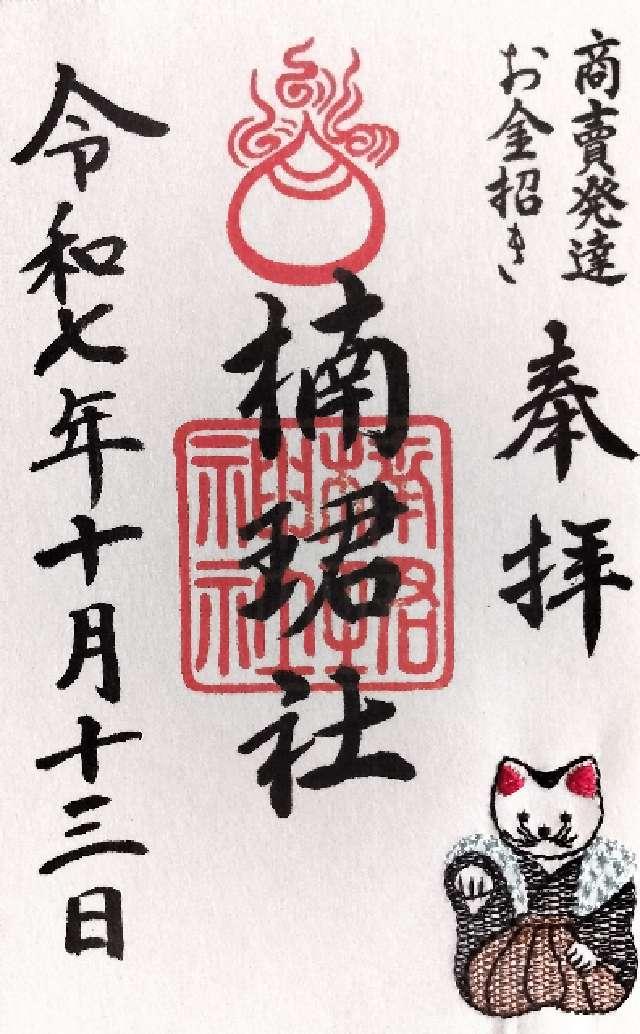 商賣発達
お金招き
奉拝
楠珺社
令和七年十月十三日